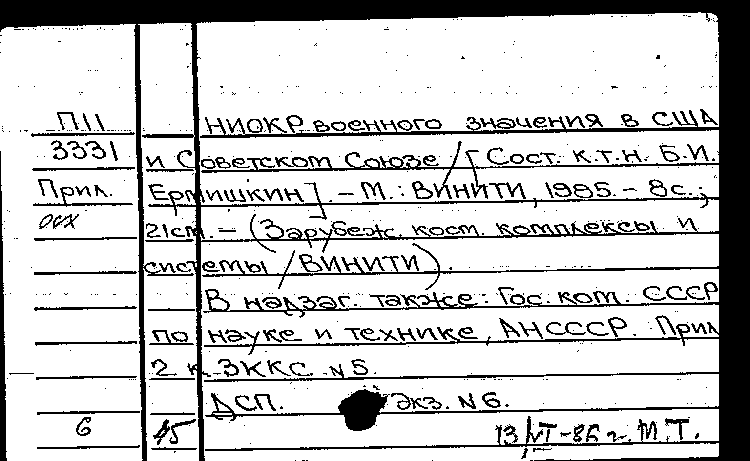 П11
3331
Прил.
осх
НИОКР военного значения в США
и Советском Союзе / [Сост. к.т.н. Б.И.
Ермишкин]. – М.: ВИНИТИ, 1985. – 8с.;
21см. – (Зарубеж. косм. комплексы и
системы / ВИНИТИ).
В надзаг. также: Гос. ком. СССР
по науке и технике, АН СССР. Прил
2 к ЗККС N5.
ДСП. Экз. N6.
6 45 13/VI-86 г. М.Т.